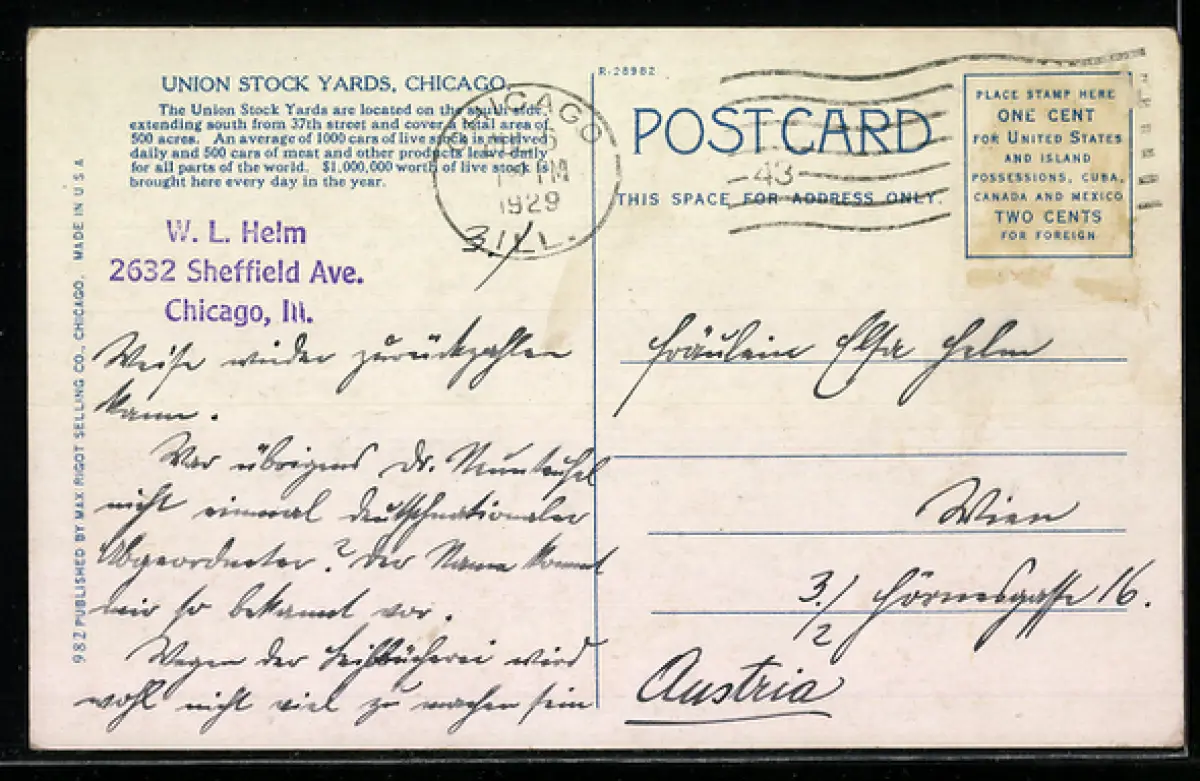 UNION STOCK YARDS, CHICAGO.
The Union Stock Yards are located on the south side,
extending south from 37th street and cover a total area of
500 acres. An average of 1000 cars of live stock is received
daily and 500 cars of meat and other products leave daily
for all parts of the world. $1,000,000 worth of live stock is
brought here every day in the year.
W. L. Helm
2632 Sheffield Ave.
Chicago, Ill.
3./
Weise wieder zurückzahlen
kann.
War übrigens Dr.
nicht einmal deutschnationaler
Abgeordneter? Der Name kommt
mir so bekannt vor.
Wegen der Leihbücherei wird
wohl nicht viel zu machen sein
982 PUBLISHED BY MAX RIGOT SELLING CO., CHICAGO. MADE IN U.S.A
CHICAGO
1929
ILL.
R-28982
POSTCARD
43
THIS SPACE FOR ADDRESS ONLY.
PLACE STAMP HERE
ONE CENT
FOR UNITED STATES
AND ISLAND
POSSESSIONS, CUBA,
CANADA AND MEXICO
TWO CENTS
FOR FOREIGN
Fräulein Elsa Helm
Wien
3./2 Hörnesgasse 16.
Austria